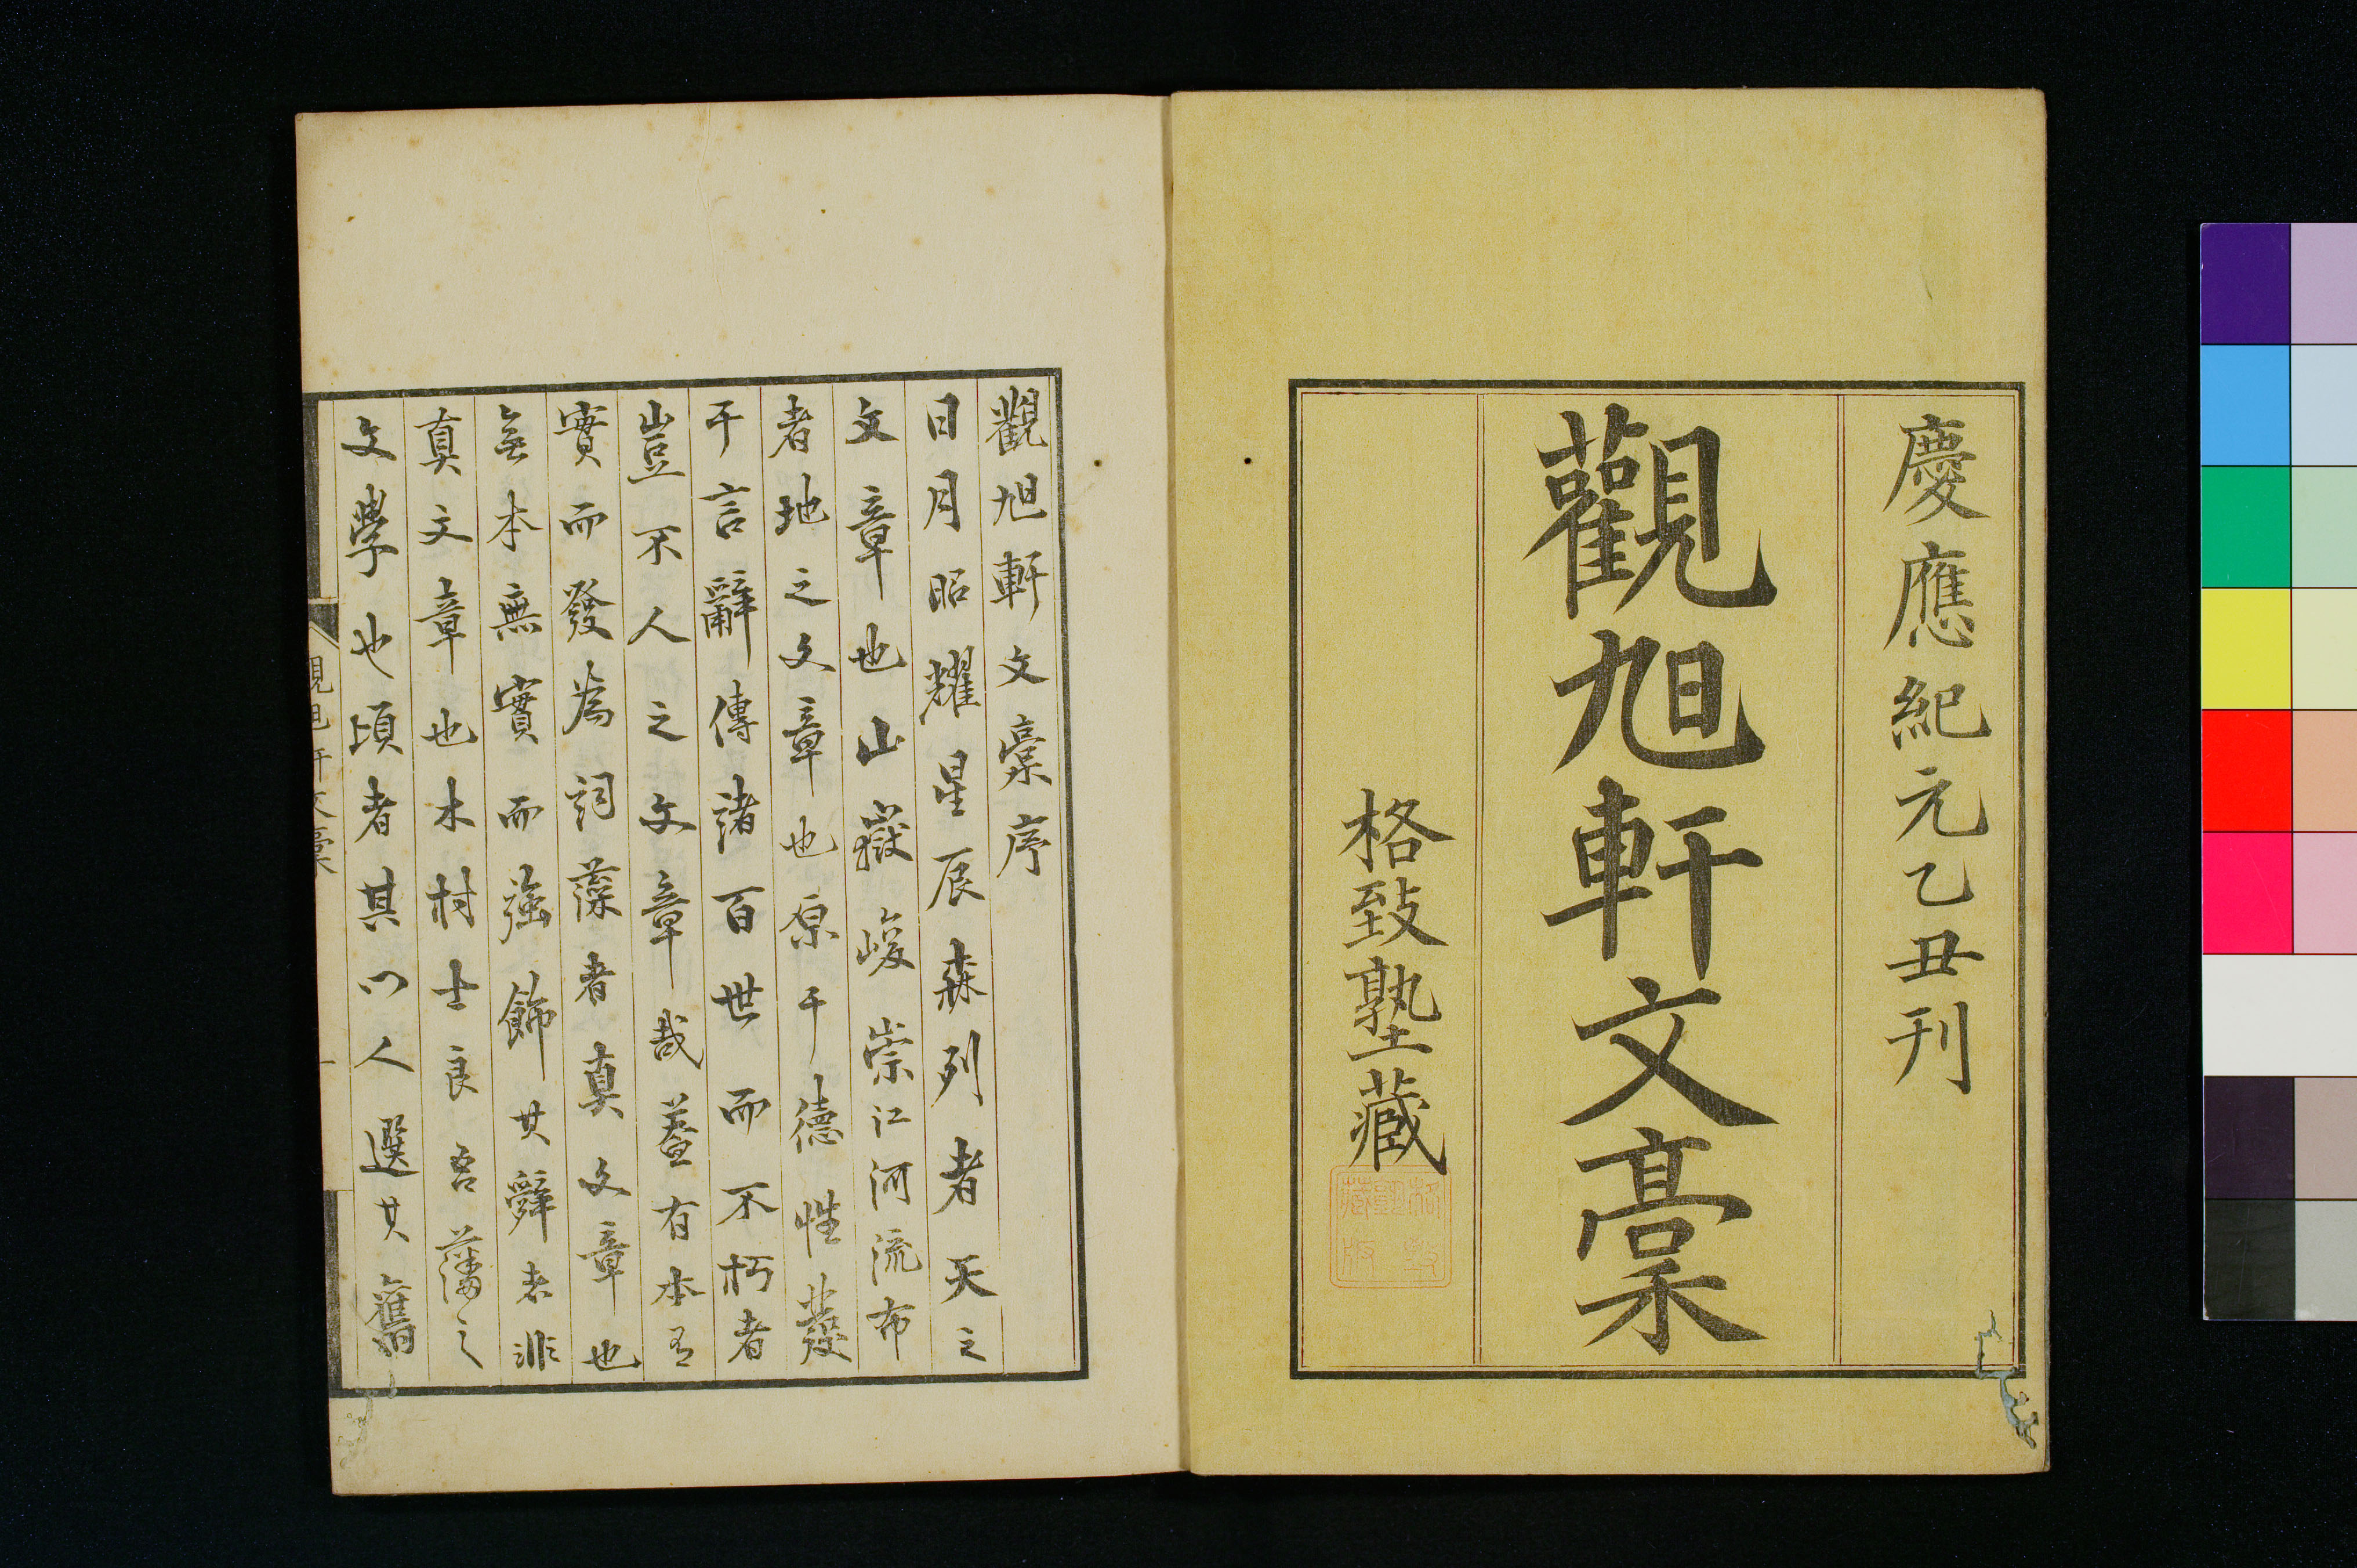 慶應紀元乙丑刊
觀旭軒文稾
格致塾藏
觀旭軒文稾序
日月昭耀星辰森列者天之
文章也山嶽峻崇江河流布
者地之文章也原于德性發
于言辭傳諸百世而不朽者
豈不人之文章哉蓋有本有
實而發為詞藻者真文章也
無本無實而強飾其辭者非
真文章也木村士良吾藩之
文學也頃者其門人選其舊